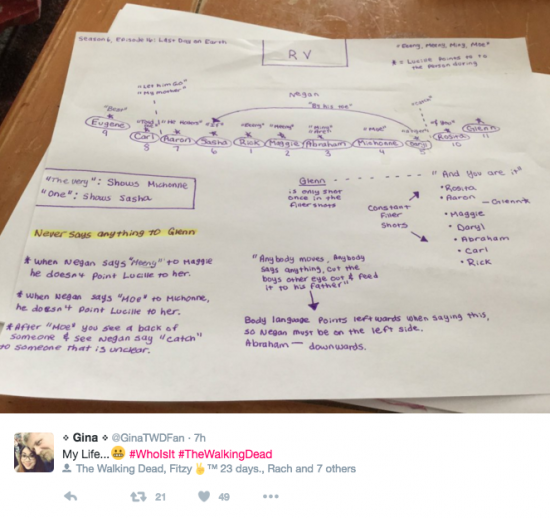 Season 6, Episode 16: Last Day on Earth
RV
"Eeny, Meeny, Miny, Moe"
* = Lucille pointed to
the person during
"Let him Go"
"My mother"
Negan
"Be his me"
"It"
"Eeny" "Meeny" "Miny" "Moe"
Eugene Carl Aaron Sasha Rick Maggie Abraham Michonne Daryl Rosita Glenn
9 8 7 6 1 2 3 4 5 10 11
"The very": Shows Michonne
"One": Shows Sasha
Glenn
is only shot
once in the
Finer shots
Constant
Finer
Shots
"And You are it"
• Rosita
• Aaron — Glenn
• Maggie
• Daryl
• Abraham
• Carl
• Rick
Never says anything to Glenn
* When Negan says "Meeny" to Maggie
he doesnt Point Lucille to her.
* When Negan says "Moe" to Michonne,
he doesn't Point Lucille to her.
* After "Moe" you see a back of
someone & see Negan say "catch"
to someone that is unclear.
"Anybody moves, Anybody
says anything, cut the
boys other eye out & feed
it to his father"
Body language Points leftwards when saying this,
so Negan must be on the left side.
Abraham — downwards.
Gina @GinaTWDFan · 7h
My Life...😬 #WhoIsIt #TheWalkingDead
The Walking Dead, Fitzy ✌️™ 23 days., Rach and 7 others
21 49